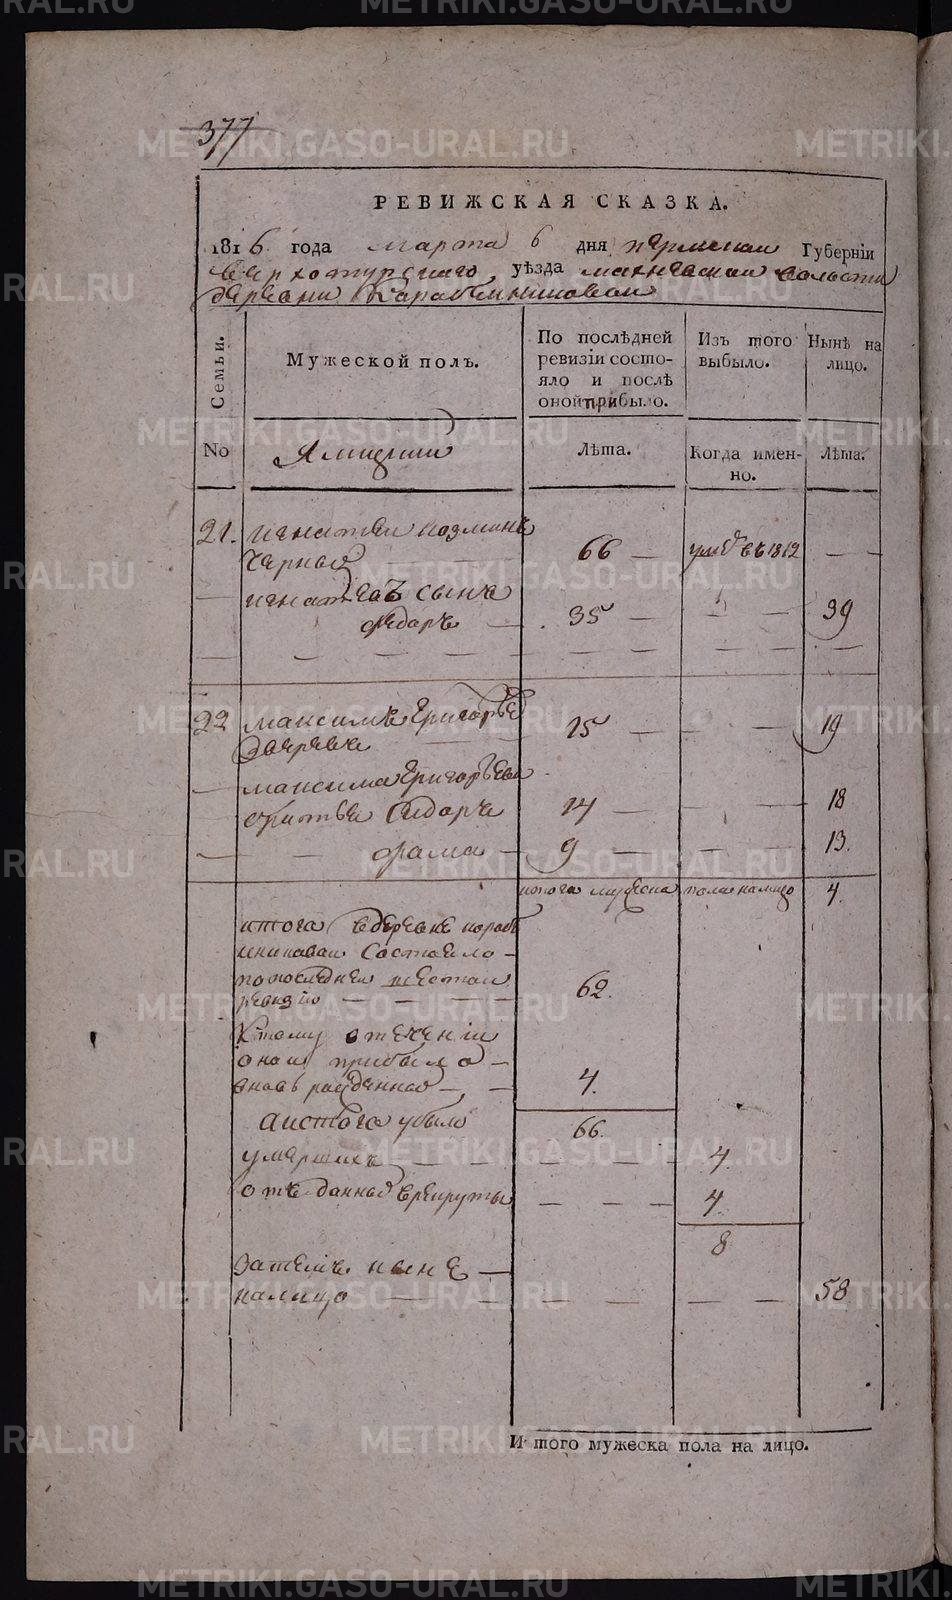 377
РЕВИЖСКАЯ СКАЗКА.
1816 года марта 6 дня пермской Губерніи
верхотурскаго уѣзда махневской волости
деревни
Семьи.
Мужеской полъ.
По послѣдней ревизіи состо-
яло и послѣ
оной прибыло.
Изъ того
выбыло.
Нынѣ на
лицо.
No
Ямщики
Лѣта.
Когда имен-
но.
Лѣта.
21. игнатей козминъ 66 — умре въ 1812 — —
черных
игнатьевъ сынъ
федоръ — 35 — — — 39
22 максимъ григорьев 15 — — — 19
зверевъ
максима григорьева
братья сидоръ 14 — — — 18
— — фама — 9 — — — 13.
итого мужеска пола на лицо 4.
итого в деревне
состояло —
по последней шестой
ревизiи — — — — 62.
к тому в течении
оной прибыло —
вновь рожденных — — 4.
а итого убыло 66.
умерших — — — — — — 4
отъ данных в рекруты — — — 4.
8
затемъ ныне —
налицо — — — — — — — 58
И того мужеска пола на лицо.
METRIKI.GASO-URAL.RU